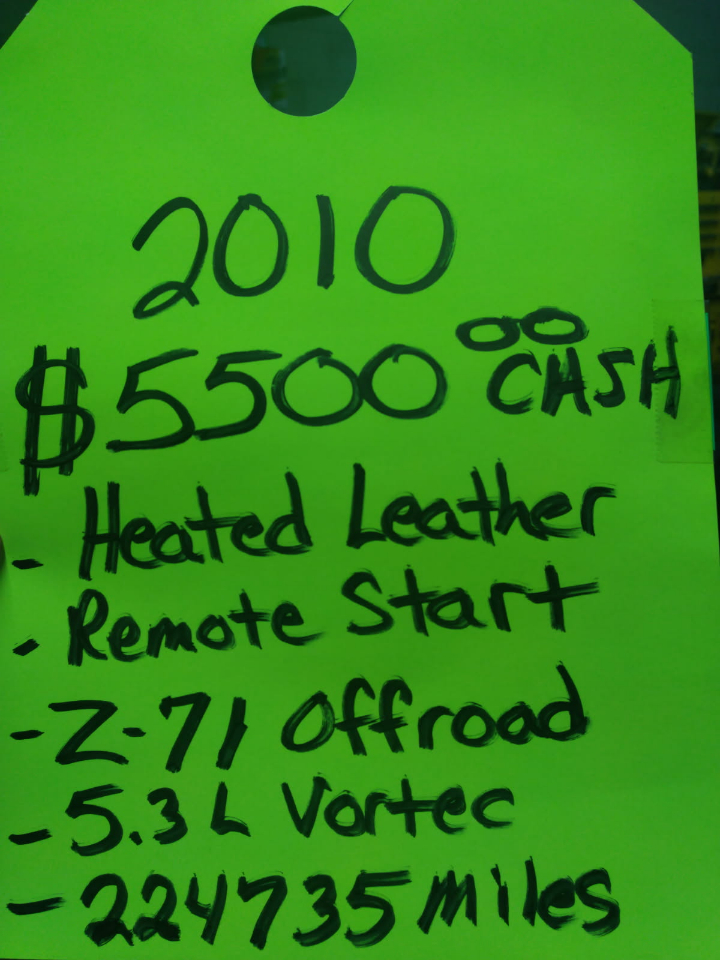 2010
$5500 00 CASH
- Heated Leather
- Remote Start
- Z-71 Offroad
- 5.3 L Vortec
- 224735 miles